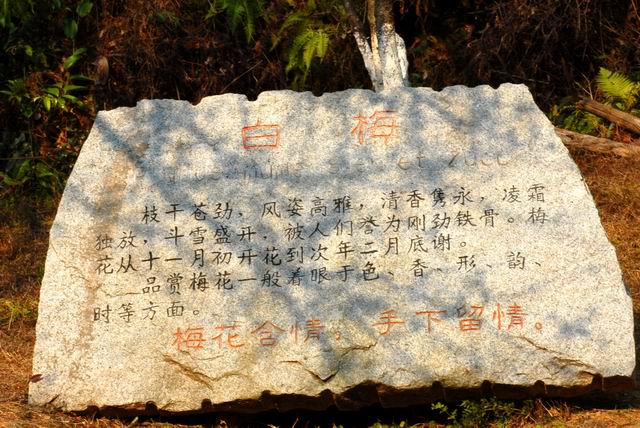 白 梅
et Zucc
枝干苍劲，风姿高雅，清香隽永，凌霜
独放，斗雪盛开，被人们誉为刚劲铁骨。梅
花从十一月初开花到次年二月底谢。
品赏梅花一般着眼于色、香、形、韵、
时等方面。
梅花含情，手下留情。